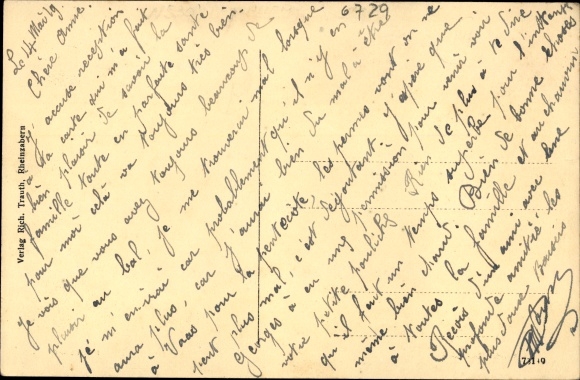 6729
Le 14 Mai 19
Chère Amie.
J'y accuse reception
à ta carte qui m'a fait
bien plaisir de savoir la
famille toute en parfaite santé
pour moi cela va toujours très bien.
Je vois que vous avez toujours beaucoup de
plaisir au bal, je me trouverai mal lorsque
je m'enirai car probablement qu'il n'y en
aura plus, car j'aurai bien du mal à être
à Vaas pour la pentecôte, les permes vont on ne
peut plus mal, c'est dégoutant. J'espère que
Georges à eu une permission pour venir voir
votre petite Rien de plus à te dire
qu'il fait un temps superbe pour l'instant
même bien chaud. Bien de bonne choses
à toutes la famille et au chauvin
Reçois d'un ami avec une
profonde amitié, les
plus doux Baisers
Verlag Rich. Trauth, Rheinzabern
7.1.9